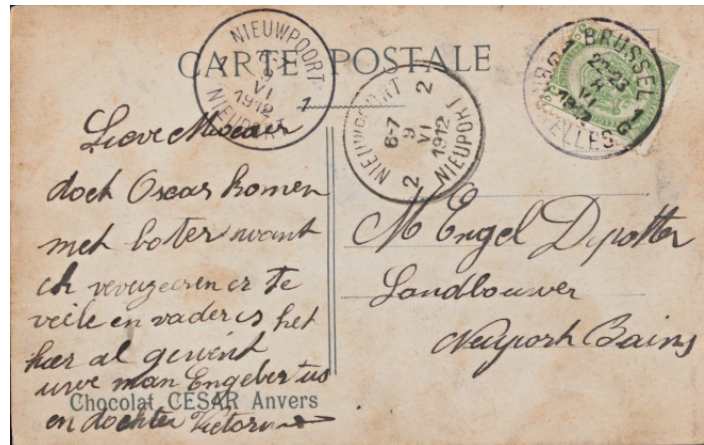 CARTE POSTALE
NIEUWPOORT
VI
1912
NIEUPORT
NIEUWPOORT 2
6-7
9
VI
1912
2 NIEUPORT
BRUSSEL
22-23
8
VI
1912
Lieve Moeder
doet Oscar komen
met boter want
te
veile en vader is het
hier al gewent
uwe man Engebertus
en dochter Victorine
Chocolat CÉSAR Anvers
M Engel Depotter
Landbouwer
Nieuport Bains